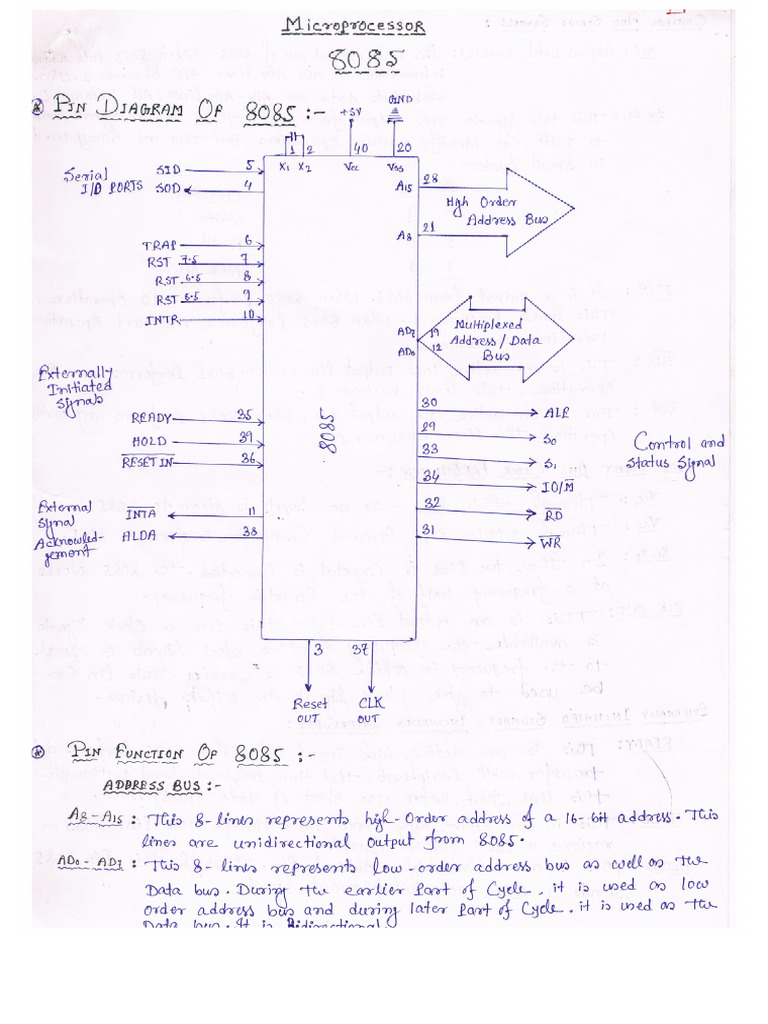 Microprocessor
8085
PIN DIAGRAM OF 8085 :-
+5V
GND
1 2 40 20
X1 X2 Vcc Vss
Serial I/O PORTS
SID 5
SOD 4
TRAP 6
RST 7.5 7
RST 6.5 8
RST 5.5 9
INTR 10
A15 28
High Order
Address Bus
A8 21
AD7 19
AD0 12
Multiplexed
Address/Data
Bus
Externally
Initiated
Signals
READY 35
HOLD 39
RESET IN 36
8085
30 ALE
29 S0
33 S1
34 IO/M̅
32 R̅D̅
31 W̅R̅
Control and
Status Signal
External
Signal
Acknowled-
gement
INTA 11
HLDA 38
3 37
Reset CLK
OUT OUT
PIN FUNCTION OF 8085 :-
ADDRESS BUS :-
A8 - A15 : This 8-lines represents high-Order address of a 16-bit address. This
lines are unidirectional output from 8085.
AD0 - AD7 : This 8-lines represents low-order address bus as well as the
Data bus. During the earlier Part of Cycle, it is used as low
order address bus and during later Part of Cycle, it is used as the
Data bus. It is Bidirectional.